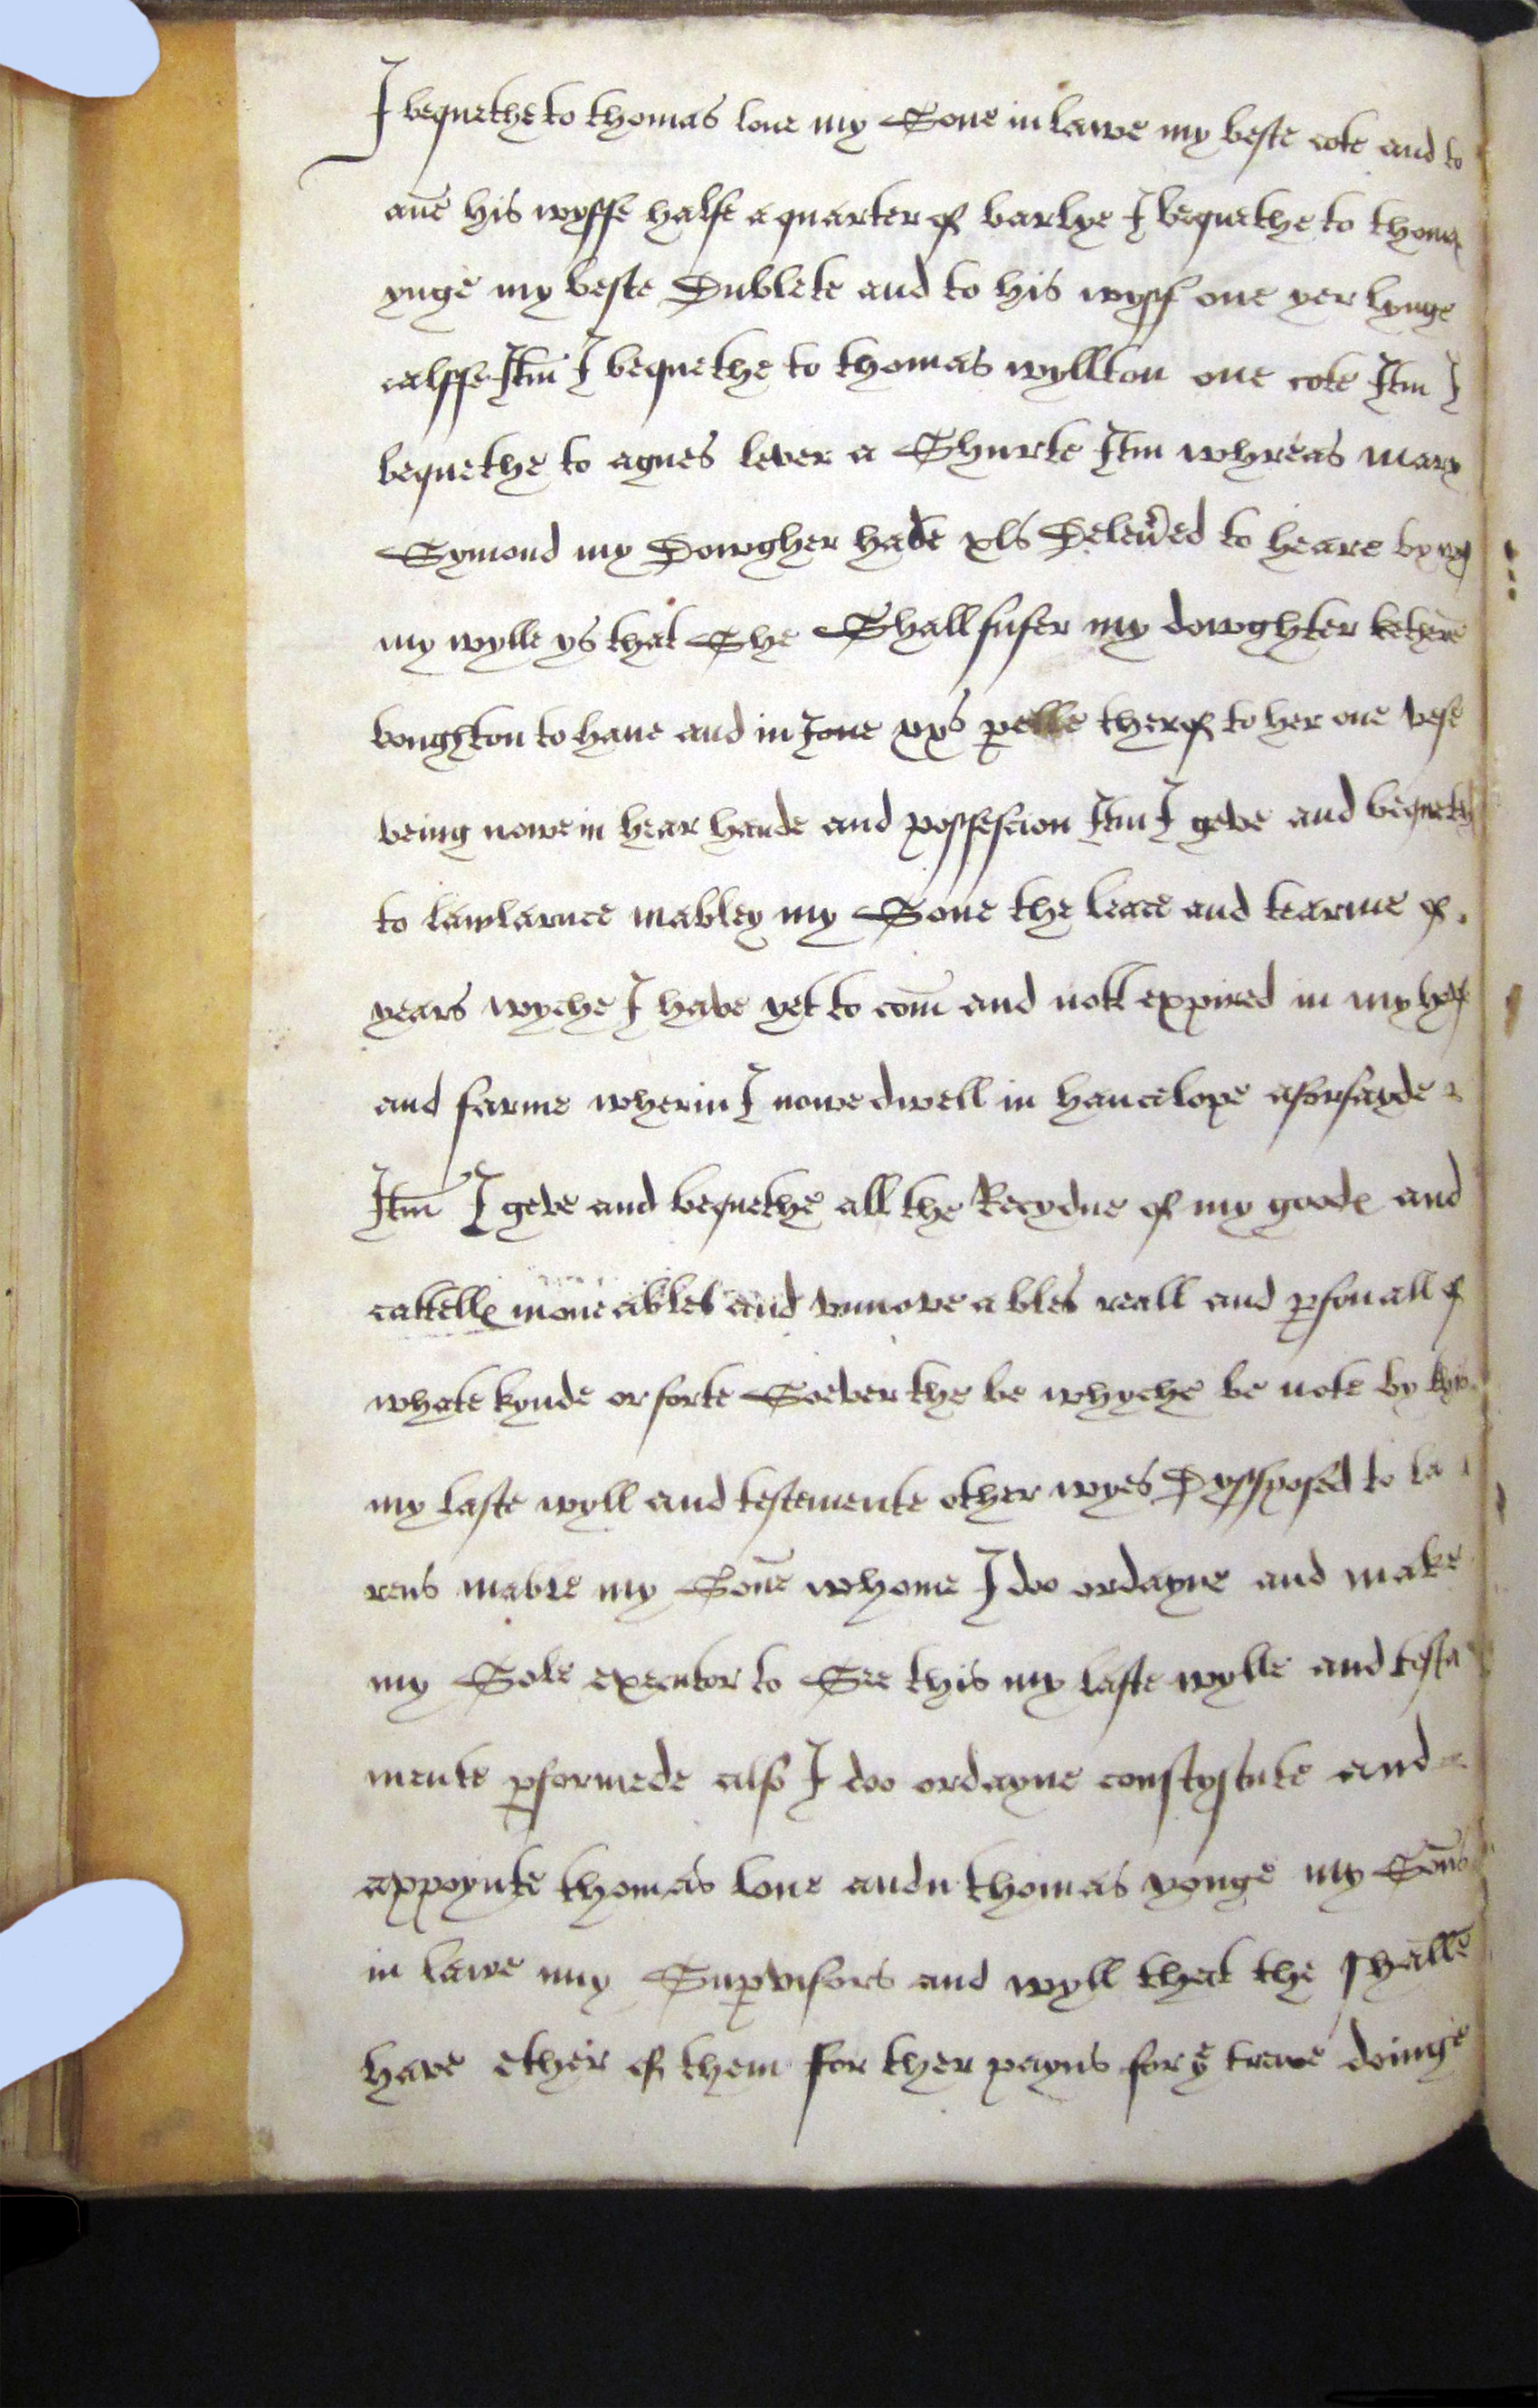 I bequethe to thomas love my Sone in lawe my beste cote and to
ane his wyffe halfe a quarter of barlye I bequethe to thomas
ynge my beste Dublete and to his wyff one yerlynge
calffe Itm I bequethe to thomas wyllton one cote Itm I
bequethe to agnes lever a Shurte Itm whreas mary
Symond my Dowgher have xls Delevred to heare by
my wylle ys that She Shall suffer my dowghter
boughton to have and inJoye xxs therof to her one vse
being nowe in hear hande and possescion Itm I geve and bequeth
to lawlarnce mabley my Sone the leace and tearme of
years wyche I have yet to com and nott expired in my
and farme wherin I nowe dwell in hancelope aforsayde
Itm I geve and bequethe all the Recydue of my goods and
cattells moveables and vnmoveables reall and psonall of
whate kynde or sorte Soever the be whyche be note by
my laste wyll and testemente other wyes Dyssposed to la
rens mable my Sone whome I doo ordayne and make
my Sole executor to See this my laste wylle and testa
mente pformede also I doo ordayne constytute and
appoynte thomas love andn thomas yonge my Sons
in lawe my Supvisors and wyll that the shalle
have ether of them for ther payns for ye trewe doinge